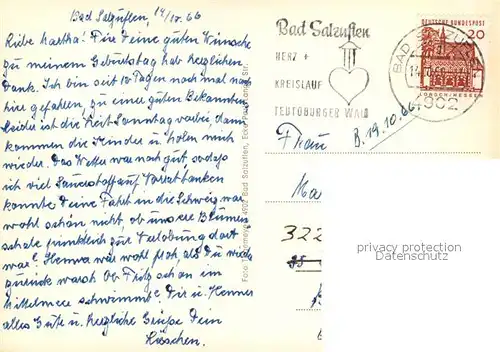 Bad Salzuflen, 14/10.66
Liebe Martha! Für Deine guten Wünsche
zu meinem Geburtstag hab herzlichen
Dank. Ich bin seit 10 Tagen noch mal nach
hier gefahren, zu einer guten Bekannten
leider ist die Zeit Sonntag vorbei dann
kommen die Kinder u. holen mich
wieder. Das Wetter war noch gut, sodass
ich viel Sauerstoff auf Vorrat tanken
konnte Deine Fahrt in die Schweiz war
wohl schön nicht, ob unsere Blumen
schale pünktlich zur Verlobung dort
war? Henner wär wohl froh, als Du wieder
zurück warst. Ob Fritz schon im
Mittelmeer schwimmt? Dir u. Henner
alles Gute u. herzliche Grüße Dein
Röschen.
4902 Bad Salzuflen
Bad Salzuflen
HERZ +
KREISLAUF
TEUTOBURGER WALD
BAD SALZUFLEN
4902
DEUTSCHE BUNDESPOST
20
LORSCH/HESSEN
Frau
B. 19.10.66
Ma
322
privacy protection
Datenschutz